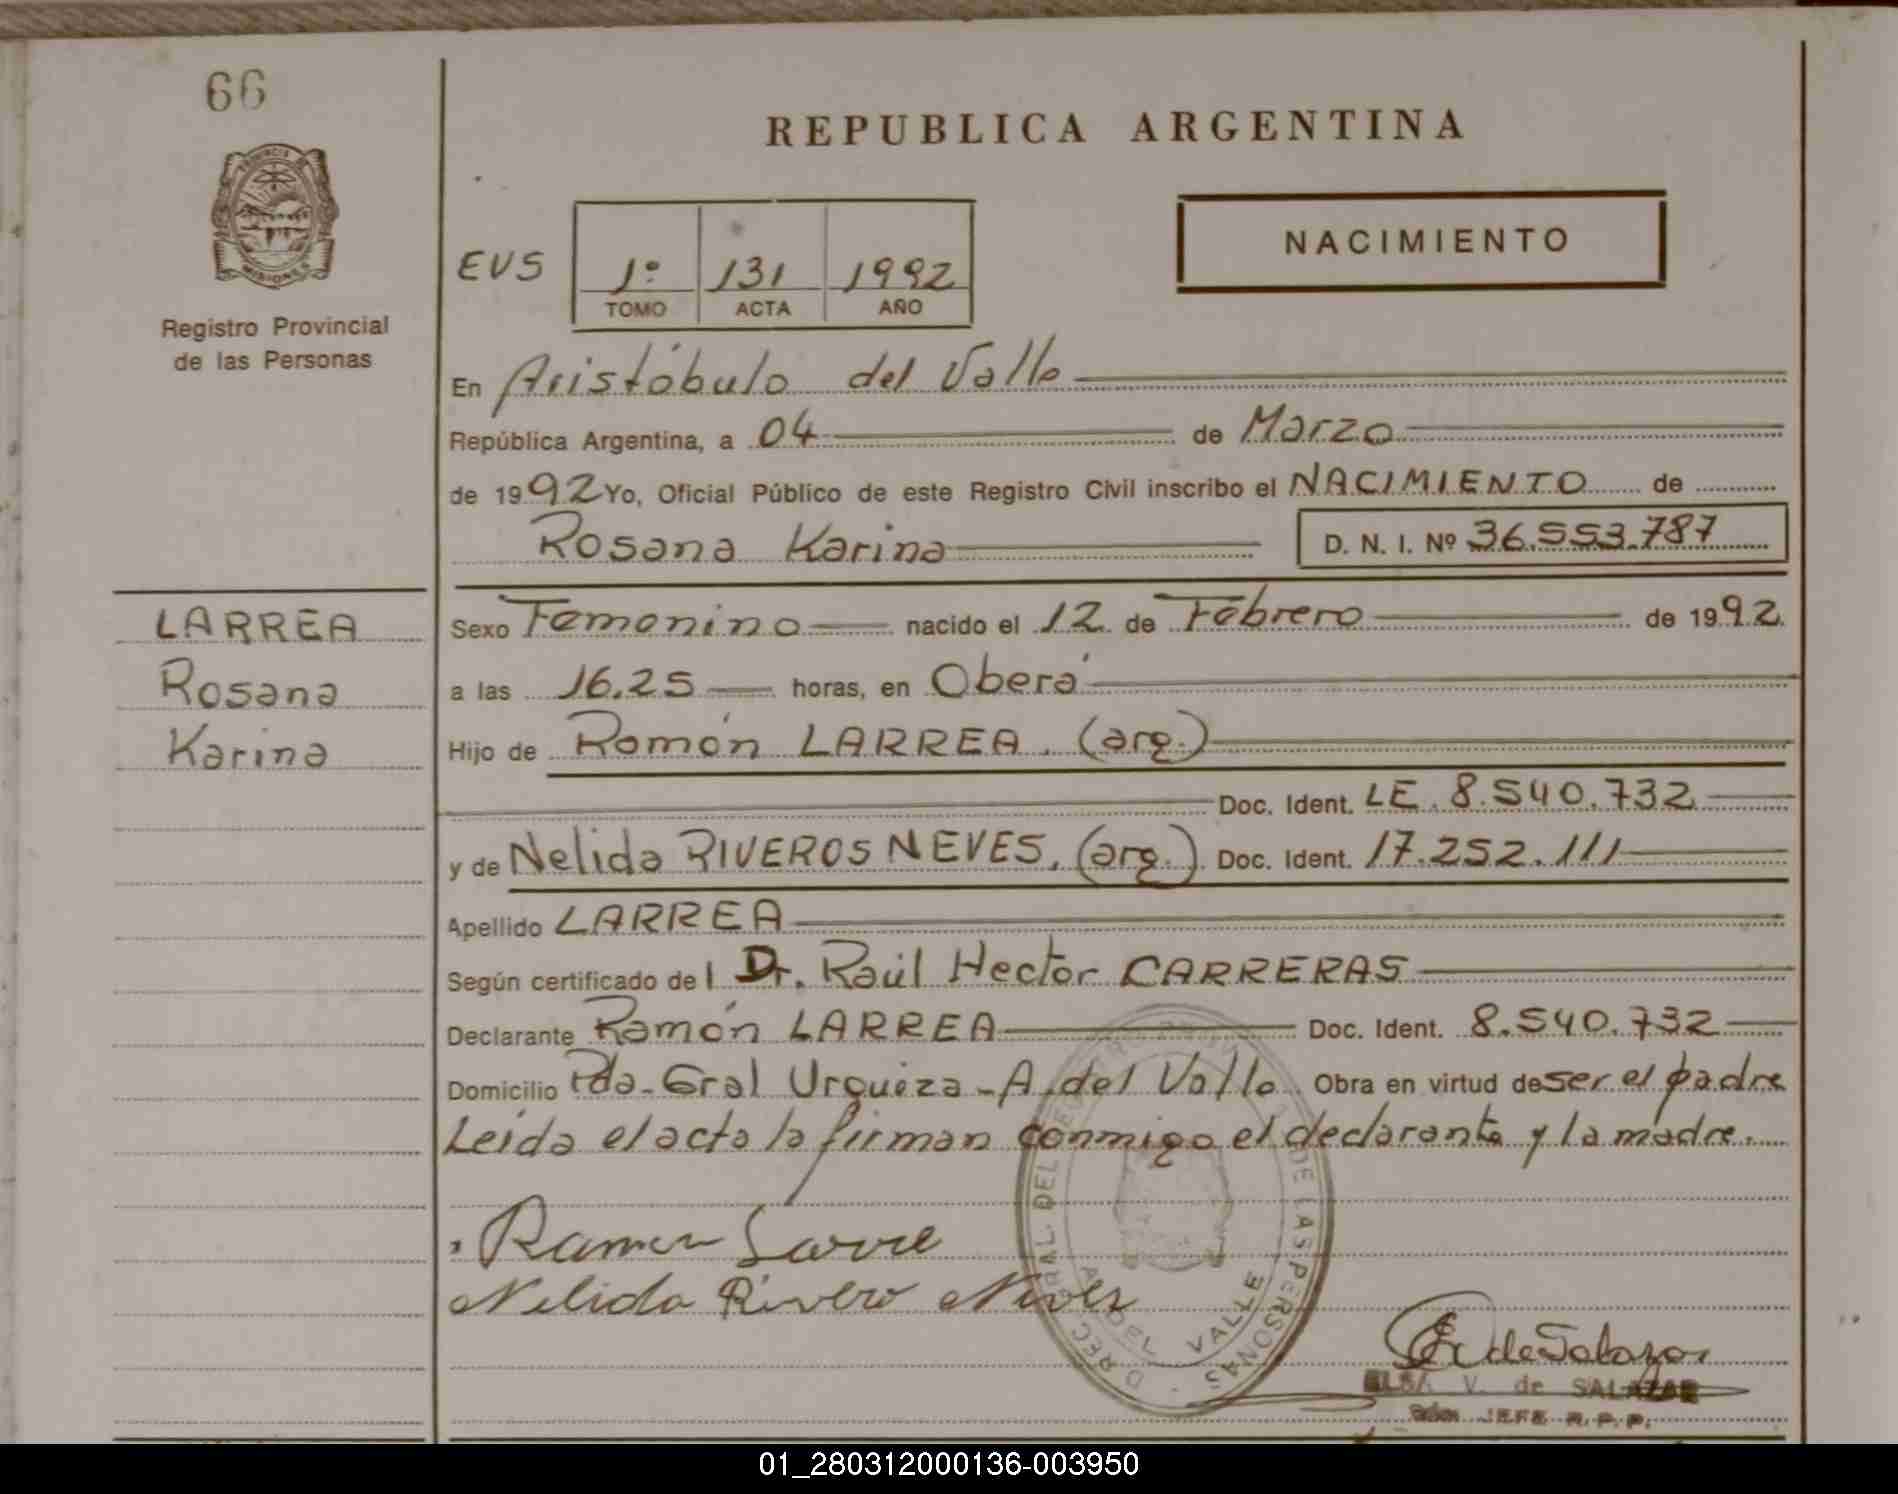 66
PROVINCIA DE
MISIONES
Registro Provincial
de las Personas
REPUBLICA ARGENTINA
NACIMIENTO
EVS 1º 131 1992
TOMO ACTA AÑO
En Aristóbulo del Valle
República Argentina, a 04 de Marzo
de 1992 Yo, Oficial Público de este Registro Civil inscribo el NACIMIENTO de
Rosana Karina D. N. I. Nº 36.553.787
LARREA
Rosana
Karina
Sexo Femenino nacido el 12 de Febrero de 1992
a las 16.25 horas, en Oberá
Hijo de Ramón LARREA. (arg.)
Doc. Ident. LE. 8.540.732
y de Nelida RIVEROS NEVES. (arg.) Doc. Ident. 17.252.111
Apellido LARREA
Según certificado del Dr. Raúl Hector CARRERAS
Declarante Ramón LARREA Doc. Ident. 8.540.732
Domicilio Pda- Gral Urquiza - A. del Valle Obra en virtud de ser el padre
Leída el acta la firman conmigo el declarante y la madre.
Ramon Larre
Nelida Rivero Nives
DE LAS PERSONAS
A. DEL VALLE
de Salazar
ELSA V. de SALAZAR
JEFE R. P. P.
01_280312000136-003950